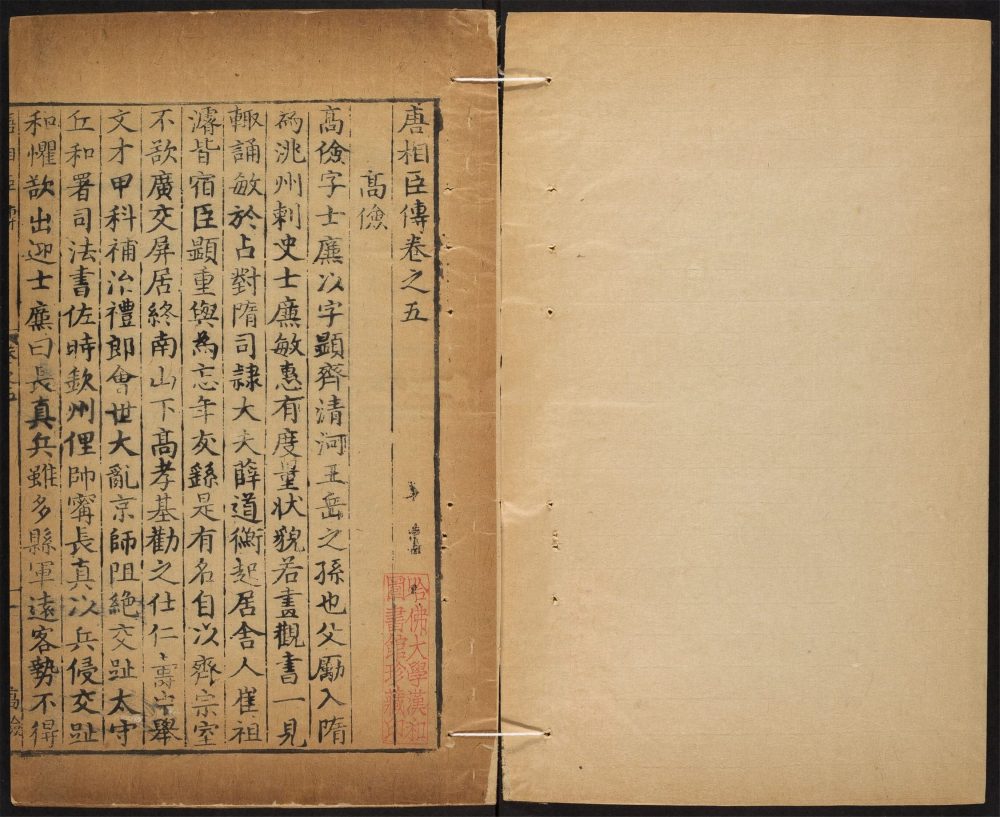 唐相臣傳卷之五
高儉
高儉字士廉以字顯齊清河王岳之孫也父勵入隋
為洮州刺史士廉敏惠有度量狀貌若畫觀書一見
輙誦敏於占對隋司隷大夫薛道衡起居舍人崔祖
濬皆宿臣顯重與為忘年友繇是有名自以齊宗室
不欲廣交屏居終南山下高孝基勸之仕仁壽中舉
文才甲科補治禮郎會世大亂京師阻絶交趾太守
丘和署司法書佐時欽州俚帥寗長真以兵侵交趾
和懼欲出迎士廉曰長真兵雖多縣軍遠客勢不得
唐相臣傳
卷之五
高儉
哈佛大學漢和
圖書館珍藏印